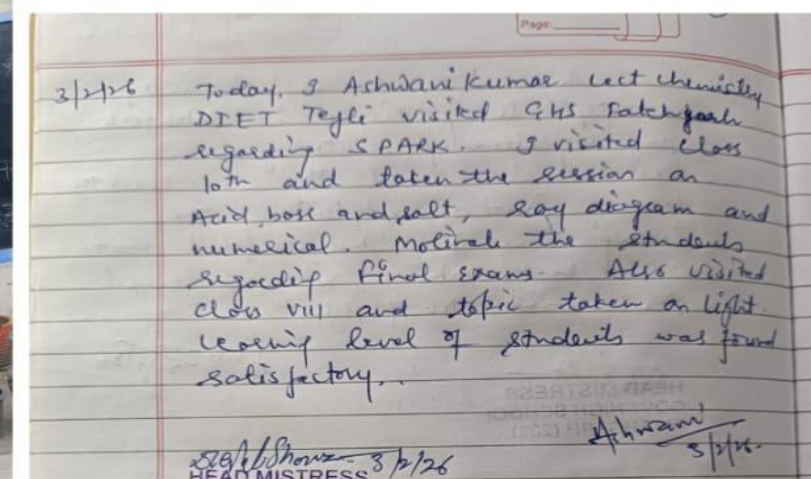 Page:
3/2/26 Today, I Ashwani Kumar Lect chemistry
DIET Tejli visited GHS Fatehgarh
regarding SPARK. I visited class
10th and taken the session on
Acid, base and salt, ray diagram and
numerical. Motivate the students
regarding final exams. Also visited
class VIII and topic taken on light.
Learning level of students was found
satisfactory..
Ashwani
3/2/26.
3/2/26
HEAD MISTRESS